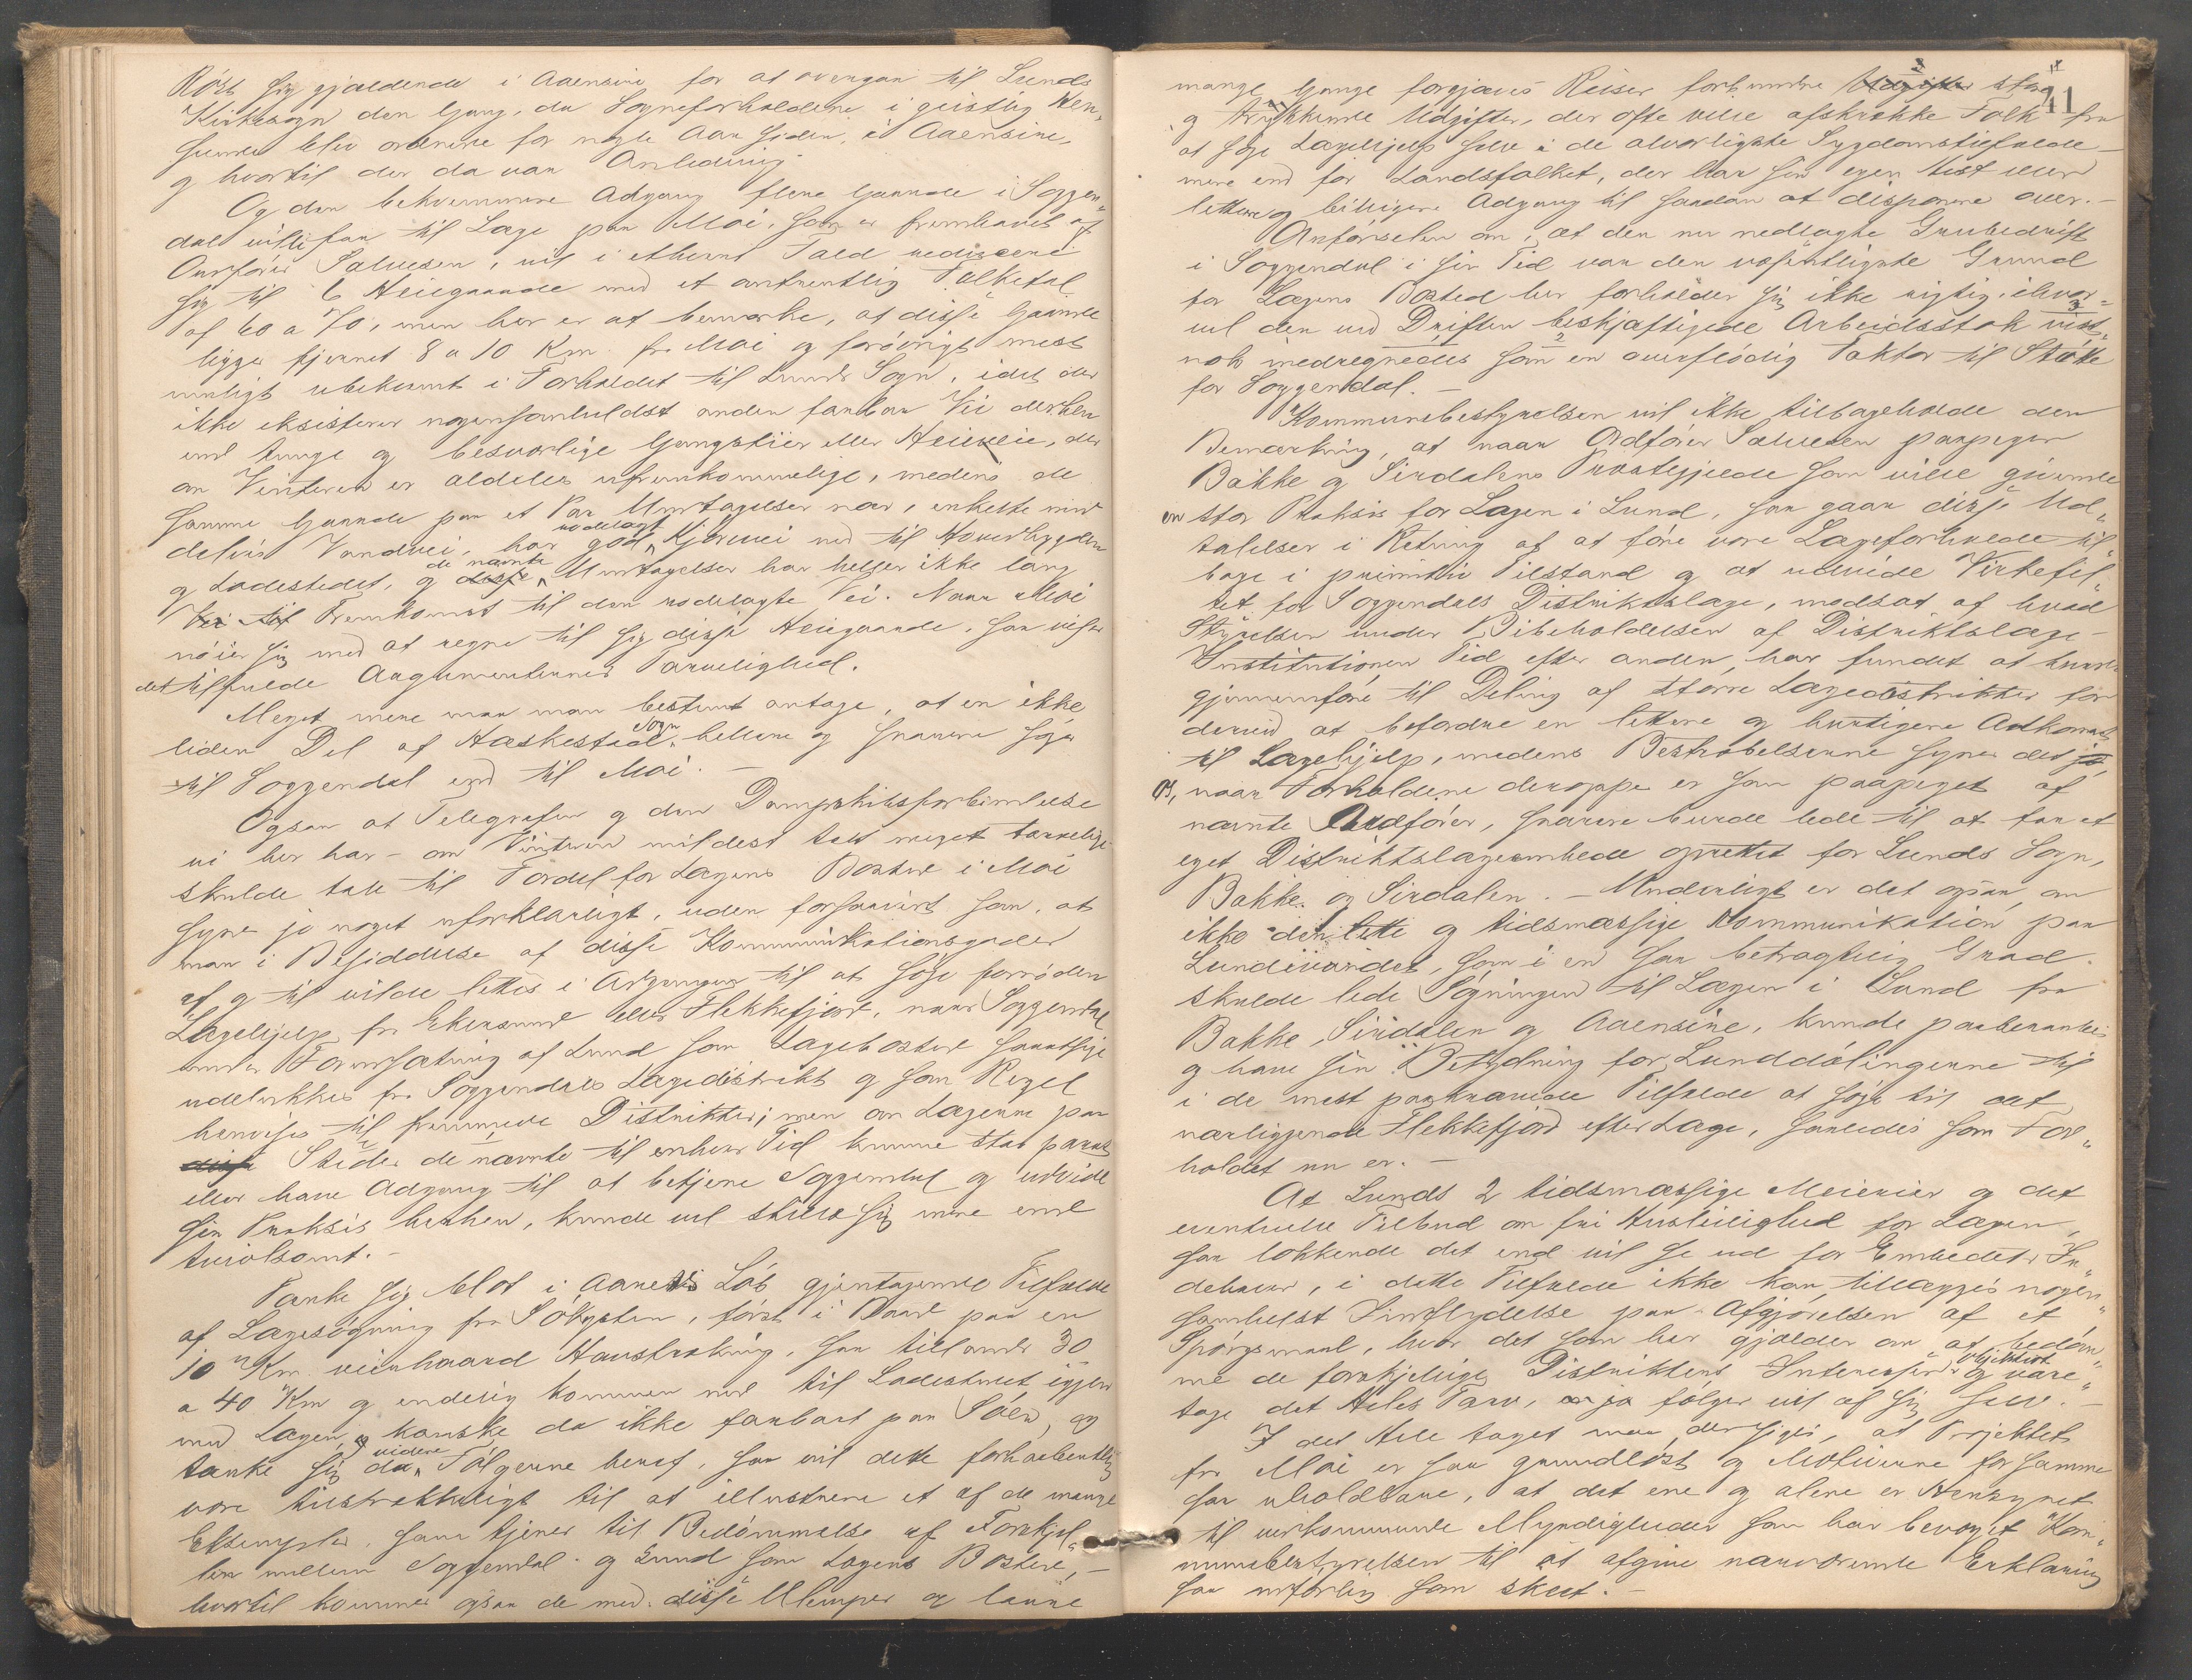 Röst sig gjældende i Aaensire for at overgaa til Lunds
Kirkesogn den Gang, da Sogneforholdene i geistlig Hen„
seende blev ordnede for nogle Aar siden, i Aaensire,
og hvortil der da var Anledning.
Og den bekvemmere Adgang flere Gaarde i Soggen„
dal vilde faa til Læge paa Moi, som er fremhævet af
Ordfører Salvesen, vil i ethvert Fald redusere
sig til 6 Heiegaarde med et omtrentlig Folketal
af 60 a 70, men her er at bemærke, at disse Gaarde
ligger fjernet 8 a 10 Km. fra Moi og forövrigt mest
muligt ubekvemt i Forholdet til Lunds Sogn, idet der
ikke eksisterer nogensomhelst anden farbar Vei derhen
end tunge og besværlige Gangstier eller Heieveie, der
om Vinteren er aldeles ufremkommelige, medens de
samme Gaarde paa et Par Undtagelser nær, enkelte med
delvis Vandvei, har god rodelagt Kjörevei ned til Hovedbygden
og Ladestedet, og de nævnte Undtagelser har heller ikke lang
Vei til Fremkomst til den rodelagte Vei. Naar Moi
nöier sig med at regne til sig disse Heiegaarde, saa viser
det tilfulde Argumenternes Tarvelighed.
Meget mere maa man bestemt antage, at en ikke
liden Del af Hæskestad Sogn hellere og snarere söger
til Soggendal end til Moi. —
Ogsaa at Telegrafen og den Dampskibsforbindelse
vi her har – om Vinteren mildest talt meget tarvelig
skulde tale til Fordel for Lægens Bosted i Moi
synes jo noget uforklarligt, uden forsaavidt som, at
man i Besiddelse af disse Kommunikationsgoder
af og til vilde lettes i Adgangen til at söge fornöden
Lægehjelp fra Ekersund eller Flekkefjord, naar Soggendal
under Forudsætning af Lund som Lægebosted saaatsige
udelukkes fra Soggendals Lægedistrikt og som Regel
henvises til fremmede Distrikter; men om Lægerne paa
disse Steder de nævnte til enhver Tid kunne staa parat
eller have Adgang til at betjene Soggendal og udvide
sin Praksis herhen, kunde vel stille sig mere end
tvivlsomt. –
Tænke sig blot i Aarets Löb gjentagende Tilfælde
af Lægesögning fra Sökysten, först i Baad paa en
10 Km. veirhaard Havstrækning, saa tillands 30
a 40 Km og endelig kommen ned til Ladestedet igjen
med Lægen, og kanske da ikke farbart paa Söen, og
tænke sig da videre Fölgerne heraf, saa vil dette forhaabentlig
være tilstrækkeligt til at illustrere et af de mange
Eksempler, som tjener til Bedömmelse af Forskjel„
len mellem Soggendal og Lund som Lægens Bosted, –
hvortil kommer ogsaa de med disse Ulemper og lange
41
mange Gange forgjæves Reiser forbundne store
og trykkende Udgifter, der ofte ville afskrække Folk fra
at söge Lægehjelp selv i de alvorligste Sygdomstilfælde –
mere end for Landsfolket, der har sin egen Hest eller
lettere og billigere Adgang til saadan at disponere over. –
Anförselen om, at den nu nedlagte Grubedrift
i Soggendal i sin Tid var den væsentligste Grund
for Lægens Bosted her forholder sig ikke rigtig, ihvor„
vel den ved Driften beskjæftigede Arbeidsstok vist„
nok medregnedes som en overflödig Faktor til Stötte
for Soggendal. –
Kommunebestyrelsen vil ikke tilbageholde den
Bemærkning, at naar Ordförer Salvesen paapeger
Bakke og Sirdalens Præstegjelde som ville give
en stor Praksis for Lægen i Lund, saa gaar disse Ud„
talelser i Retning af at före vore Lægeforholde til„
bage i primitiv Tilstand og at udvide Virkefel„
tet for Soggendals Distriktslæge, modsat af hvad
Styrelsen under Bibeholdelsen af Distriktslæge–
Institutionen Tid efter anden har fundet at burde
gjennemföre til Deling af större Lægedistrikter for
derved at befordre en lettere og hurtigere Adkomst
til Lægehjelp, medens Bestræbelserne synes det jo,
naar Forholdene deroppe er som paapeget af
nævnte Ordförer, snarere burde lede til at faa et
eget Distriktslægeembede oprettet for Lunds Sogn,
Bakke og Sirdalen. – Underligt er det ogsaa, om
ikke den lette og tidsmæssige Kommunikation paa
Lundevandet, som i en saa betragtelig Grad
skulde lede Sögningen til Lægen i Lund fra
Bakke, Siredalen og Aaensire, kunde paaberaabes
og have sin Betydning for Lunddölingerne til
i de mest paakrævede Tilfælde at söge til det
nærliggende Flekkefjord efter Læge, saaledes som For„
holdet nu er. –
At Lunds 2 tidsmæssige Meierier og det
eventuelle Tilbud om fri Husleilighed for Lægen,
saa lokkende det end vil se ud for Embedets In„
dehaver, i dette Tilfælde ikke kan tillægges nogen„
somhelst Indflydelse paa Afgjörelsen af et
Spörgsmaal, hvor det som her gjælder om at bedöm„
me de forskjellige Distrikters Interesser og objektivt vare„
tage det Heles Tarv, ja fölger vel af sig selv. –
I det Hele taget maa der siges, at Projektet
fra Moi er saa grundlöst og Motiverne for samme
saa uholdbare, at det ene og alene er Hensynet
til vedkommende Myndigheder som har bevæget Kom„
munebestyrelsen til at afgive nærværende Erklæring
saa udförlig som skeet. –